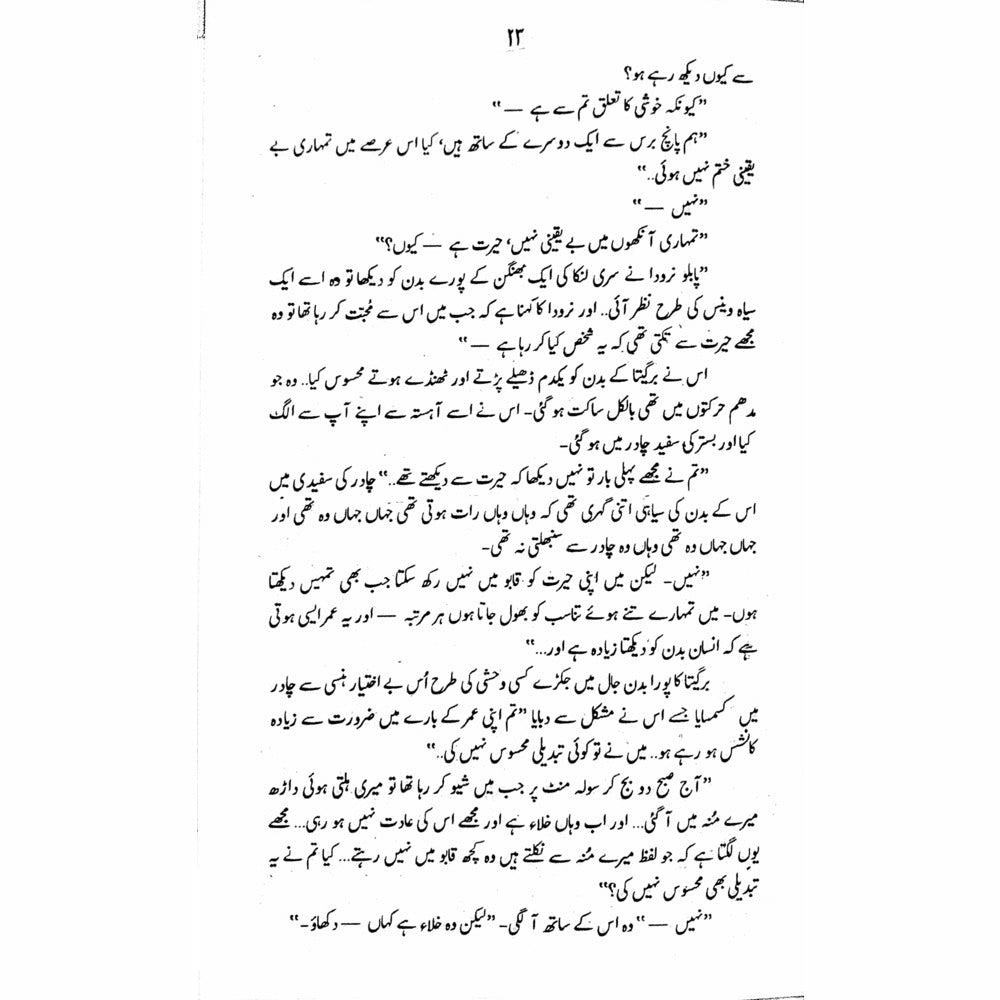 ۲۳
سے کیوں دیکھ رہے ہو؟
”کیونکہ خوشی کا تعلق تم سے ہے —“
”ہم پانچ برس سے ایک دوسرے کے ساتھ ہیں، کیا اس عرصے میں تمہاری بے
یقینی ختم نہیں ہوئی..“
”نہیں —“
”تمہاری آنکھوں میں بے یقینی نہیں، حیرت ہے — کیوں؟“
”پابلو نرودا نے سری لنکا کی ایک بھنگن کے پورے بدن کو دیکھا تو وہ اسے ایک
سیاہ وینس کی طرح نظر آئی.. اور نرودا کا کہنا ہے کہ جب میں اس سے مُحبّت کر رہا تھا تو وہ
مجھے حیرت سے تکتی تھی کہ یہ شخص کیا کر رہا ہے —“
اس نے برگیتا کے بدن کو یکدم ڈھیلے پڑتے اور ٹھنڈے ہوتے محسوس کیا.. وہ جو
مدھم حرکتوں میں تھی بالکل ساکت ہو گئی۔ اس نے اسے آہستہ سے اپنے آپ سے الگ
کیا اور بستر کی سفید چادر میں ہو گئی۔
”تم نے مجھے پہلی بار تو نہیں دیکھا کہ حیرت سے دیکھتے تھے..“ چادر کی سفیدی میں
اس کے بدن کی سیاہی اتنی گہری تھی کہ وہاں وہاں رات ہوتی تھی جہاں جہاں وہ تھی اور
جہاں جہاں وہ تھی وہاں وہ چادر سے سنبھلتی نہ تھی۔
”نہیں۔ لیکن میں اپنی حیرت کو قابو میں نہیں رکھ سکتا جب بھی تمہیں دیکھتا
ہوں۔ میں تمہارے تنے ہوئے تناسب کو بھول جاتا ہوں ہر مرتبہ — اور یہ عمر ایسی ہوتی
ہے کہ انسان بدن کو دیکھتا زیادہ ہے اور...“
برگیتا کا پورا بدن جال میں جکڑے کسی وحشی کی طرح اُس بے اختیار ہنسی سے چادر
میں کسمسایا جسے اس نے مشکل سے دبایا ”تم اپنی عمر کے بارے میں ضرورت سے زیادہ
کانشس ہو رہے ہو.. میں نے تو کوئی تبدیلی محسوس نہیں کی..“
”آج صبح دو بج کر سولہ منٹ پر جب میں شیو کر رہا تھا تو میری ہلتی ہوئی داڑھ
میرے مُنہ میں آ گئی... اور اب وہاں خلاء ہے اور مجھے اس کی عادت نہیں ہو رہی... مجھے
یوں لگتا ہے کہ جو لفظ میرے مُنہ سے نکلتے ہیں وہ کچھ قابو میں نہیں رہتے... کیا تم نے یہ
تبدیلی بھی محسوس نہیں کی؟“
”نہیں —“ وہ اس کے ساتھ آ لگی۔ ”لیکن وہ خلاء ہے کہاں — دکھاؤ۔“